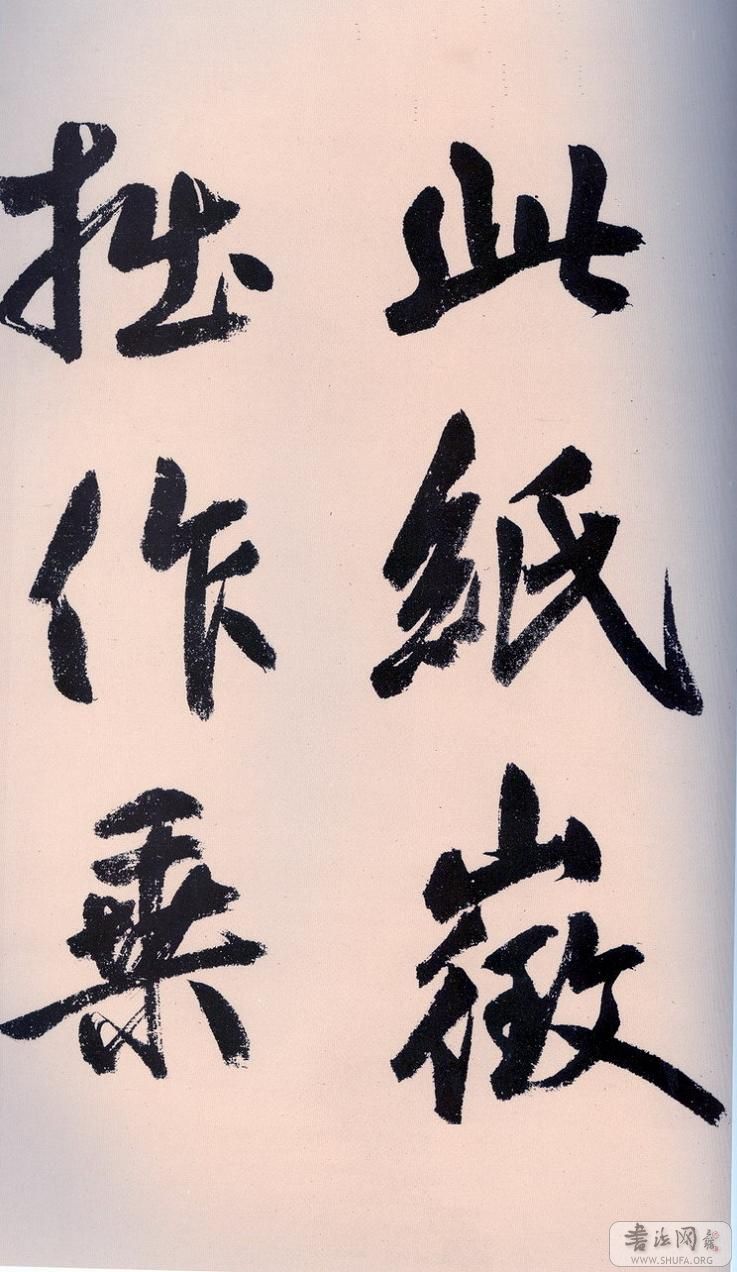 此紙徵
拙作乗
書法网
WWW.SHUFA.ORG